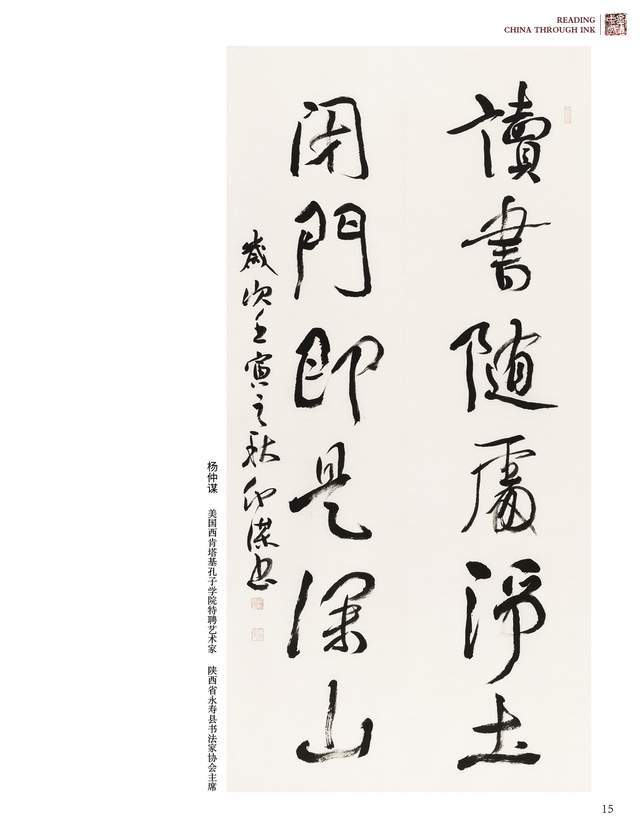 READING
CHINA THROUGH INK
讀書随處淨土
闭門即是深山
歲次壬寅之秋仲謀书
杨仲谋 美国西肯塔基孔子学院特聘艺术家 陕西省永寿县书法家协会主席
15